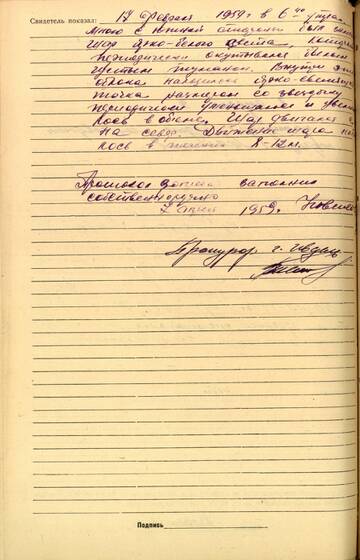 Свидетель показал: 17 февраля 1959 г в 6 40 утра
мною с южной стороны был
шар ярко-белого цвета,
периодически окутывался белым
густым туманом. Внутри
облака находилась ярко-светящ
точка размером со звездочку
периодически уменьшалась и
лась в объеме. Шар двигался
на север. Движение шара
лось в течение 8-12 м.
Протокол допроса заполнил
собственноручно
7 апрел 1959
Прокурор г. Ивдель
Подпись